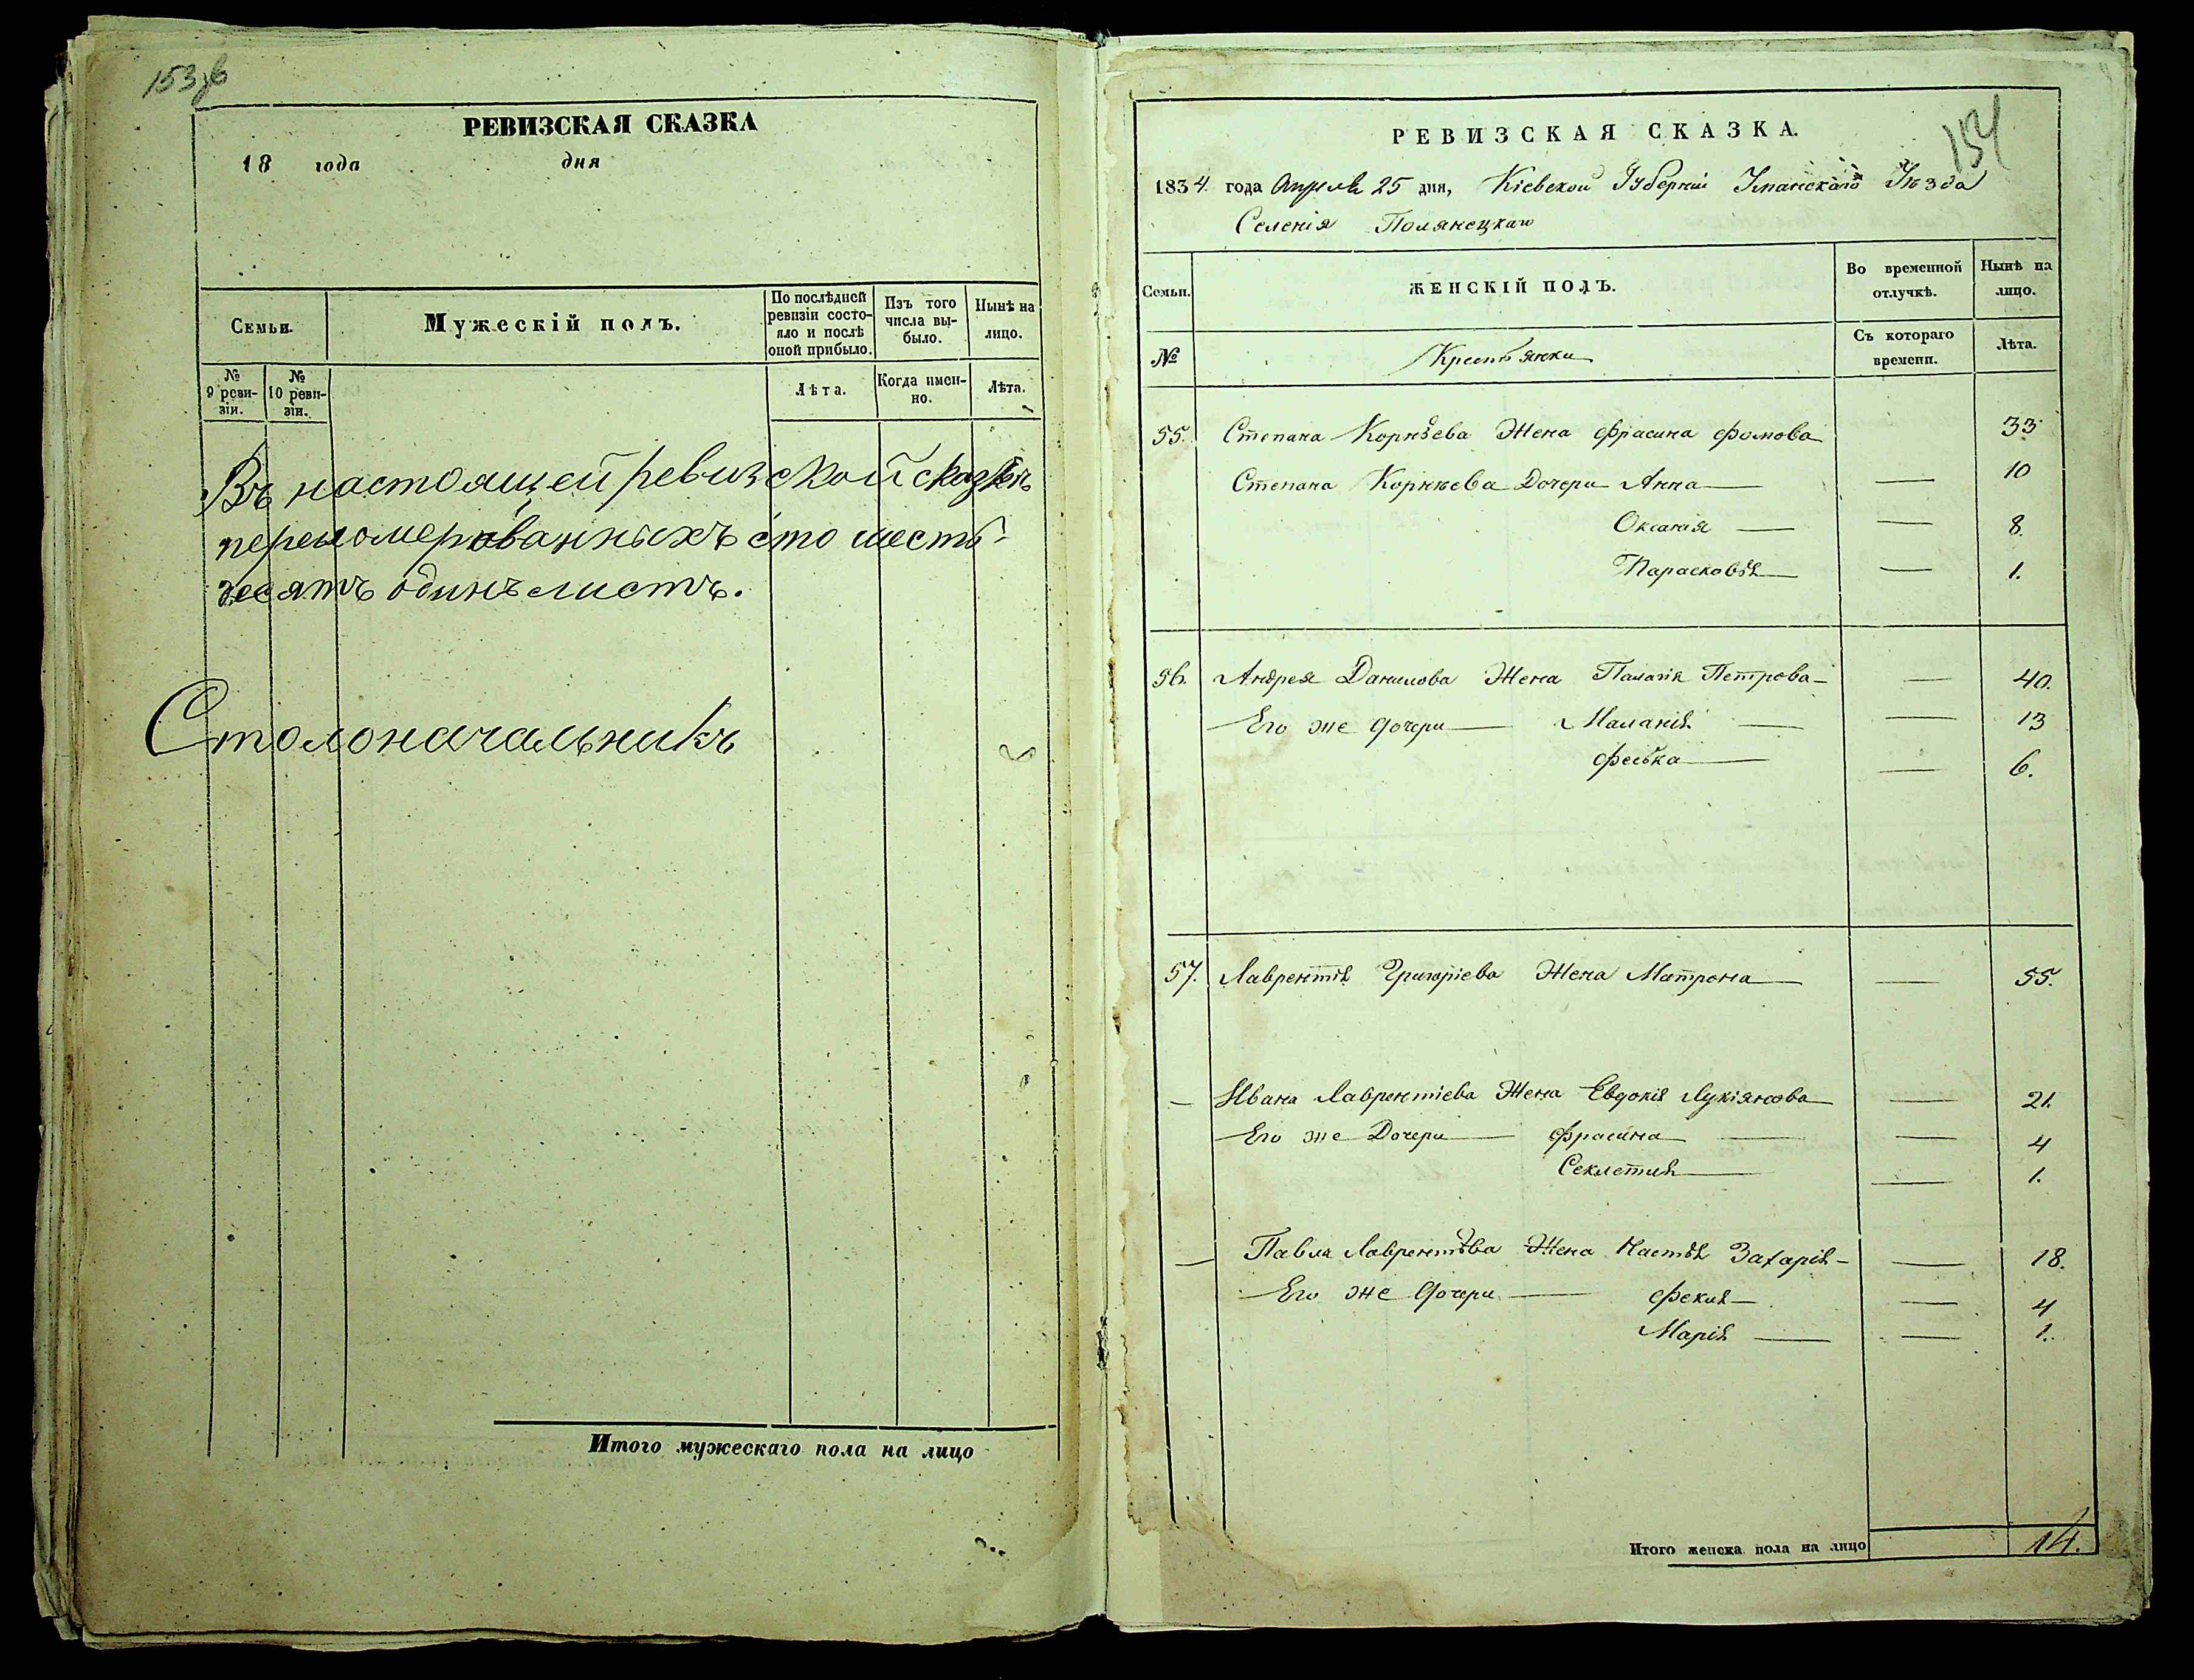 153
РЕВИЗСКАЯ СКАЗКА
18 года дня
Семьи.
Мужескій полъ.
По послѣдней ревизіи состояло и послѣ оной прибыло.
Изъ того числа выбыло.
Нынѣ на лицо.
№ 9 ревизіи.
№ 10 ревизіи.
Лѣта.
Когда именно.
Лѣта.
Въ настоящей ревизской сказкѣ
переномерованныхъ сто шесть-
десятъ одинъ листъ.
Столоначальникъ
Итого мужескаго пола на лицо
154
РЕВИЗСКАЯ СКАЗКА.
1834. года Апреля 25 дня, Кіевской Губерніи Уманскаго Уѣзда
Селенія Полянецкаго
Семьи.
ЖЕНСКІЙ ПОЛЪ.
Во временной отлучкѣ.
Нынѣ на лицо.
№
Крестьянки
Съ котораго времени.
Лѣта.
55. Степана Корнѣева Жена Фрасина Фомова 33
Степана Корнѣева Дочери Анна — — 10
Оксанія — — 8.
Парасковія — — 1.
56. Андрея Данилова Жена Палагія Петрова — — 40.
Его же дочери — Маланія — — 13
Феська — — 6.
57. Лаврентія Григоріева Жена Матрона — — 55.
— Ивана Лаврентіева Жена Евдокія Лукіянова — — 21.
Его же Дочери — Фрасина — — 4
Секлетия — — 1.
— Павла Лаврентѣва Жена Настя Захарія — — 18.
Его же дочери — Фекия — — 4
Марія — — 1.
Итого женска пола на лицо 14.